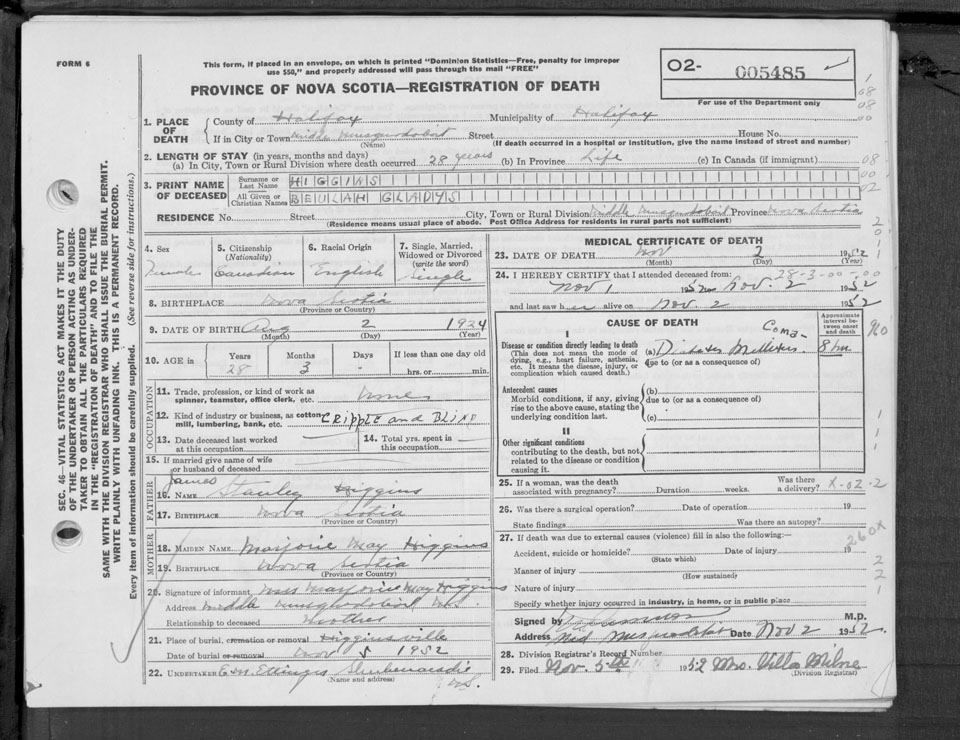 FORM 6
This form, if placed in an envelope, on which is printed "Dominion Statistics—Free, penalty for improper
use $50," and properly addressed will pass through the mail "FREE"
O2- 005485
PROVINCE OF NOVA SCOTIA—REGISTRATION OF DEATH
For use of the Department only
1. PLACE OF DEATH
County of Halifax Municipality of Halifax
If in City or Town Middle Musquodoboit Street House No.
(Name) (If death occurred in a hospital or institution, give the name instead of street and number)
2. LENGTH OF STAY (in years, months and days)
(a) In City, Town or Rural Division where death occurred 28 years (b) In Province Life (c) In Canada (if immigrant)
3. PRINT NAME OF DECEASED
Surname or Last Name HIGGINS
All Given or Christian Names BEULAH GLADYS
RESIDENCE No. Street City, Town or Rural Division Middle Musquodoboit Province Nova Scotia
(Residence means usual place of abode. Post Office Address for residents in rural parts not sufficient)
SEC. 46—VITAL STATISTICS ACT MAKES IT THE DUTY
OF THE UNDERTAKER OR PERSON ACTING AS UNDER-
TAKER TO OBTAIN ALL THE PARTICULARS REQUIRED
IN THE "REGISTRATION OF DEATH" AND TO FILE THE
SAME WITH THE DIVISION REGISTRAR WHO SHALL ISSUE THE BURIAL PERMIT.
WRITE PLAINLY WITH UNFADING INK. THIS IS A PERMANENT RECORD.
Every item of information should be carefully supplied. (See reverse side for instructions.)
4. Sex Female
5. Citizenship (Nationality) Canadian
6. Racial Origin English
7. Single, Married, Widowed or Divorced (write the word) Single
8. BIRTHPLACE Nova Scotia
(Province or Country)
9. DATE OF BIRTH Aug 2 1924
(Month) (Day) (Year)
10. AGE in Years Months Days If less than one day old
28 3 - hrs. or min.
OCCUPATION
11. Trade, profession, or kind of work as
spinner, teamster, office clerk, etc. none
12. Kind of industry or business, as cotton
mill, lumbering, bank, etc. CRIPPLE and BLIND
13. Date deceased last worked
at this occupation
14. Total yrs. spent in
this occupation
15. If married give name of wife
or husband of deceased
FATHER
James
16. NAME Stanley Higgins
17. BIRTHPLACE Nova Scotia
(Province or Country)
MOTHER
18. MAIDEN NAME Marjorie May Higgins
19. BIRTHPLACE Nova Scotia
(Province or Country)
20. Signature of informant Mrs Marjorie May Higgins
Address Middle Musquodoboit N.S.
Relationship to deceased Mother
21. Place of burial, cremation or removal Higginsville
Date of burial or removal Nov 5 1952
22. UNDERTAKER E M Ettinger Shubenacadie
(Name and address) N.S.
MEDICAL CERTIFICATE OF DEATH
23. DATE OF DEATH Nov 2 1952
(Month) (Day) (Year)
24. I HEREBY CERTIFY that I attended deceased from: 28-3-00-00
Nov 1 1952 Nov. 2 1952
and last saw her alive on Nov. 2 1952
CAUSE OF DEATH
Approximate interval between onset and death
I
Disease or condition directly leading to death
(This does not mean the mode of
dying, e.g., heart failure, asthenia,
etc. It means the disease, injury, or
complication which caused death.)
Coma-
(a) Diabetes Mellitus. 8 hrs.
due to (or as a consequence of)
Antecedent causes
Morbid conditions, if any, giving
rise to the above cause, stating the
underlying condition last.
(b)
due to (or as a consequence of)
(c)
II
Other significant conditions
contributing to the death, but not
related to the disease or condition
causing it.
25. If a woman, was the death
associated with pregnancy? Duration weeks. Was there a delivery? X-02-2
26. Was there a surgical operation? Date of operation 19
State findings Was there an autopsy?
27. If death was due to external causes (violence) fill in also the following:—
Accident, suicide or homicide? Date of injury 19
(State which)
Manner of injury
(How sustained)
Nature of injury
Specify whether injury occurred in industry, in home, or in public place
Signed by M.D.
Address Mid Musquodoboit Date Nov 2 1952.
28. Division Registrar's Record Number
29. Filed Nov. 5th 1952 Mrs. Milne
(Division Registrar)